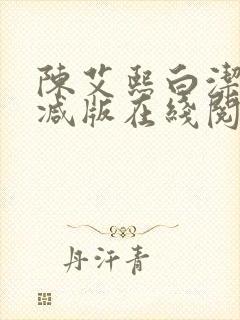 陳艾熙白潔
减版在綫閱
丹汗青